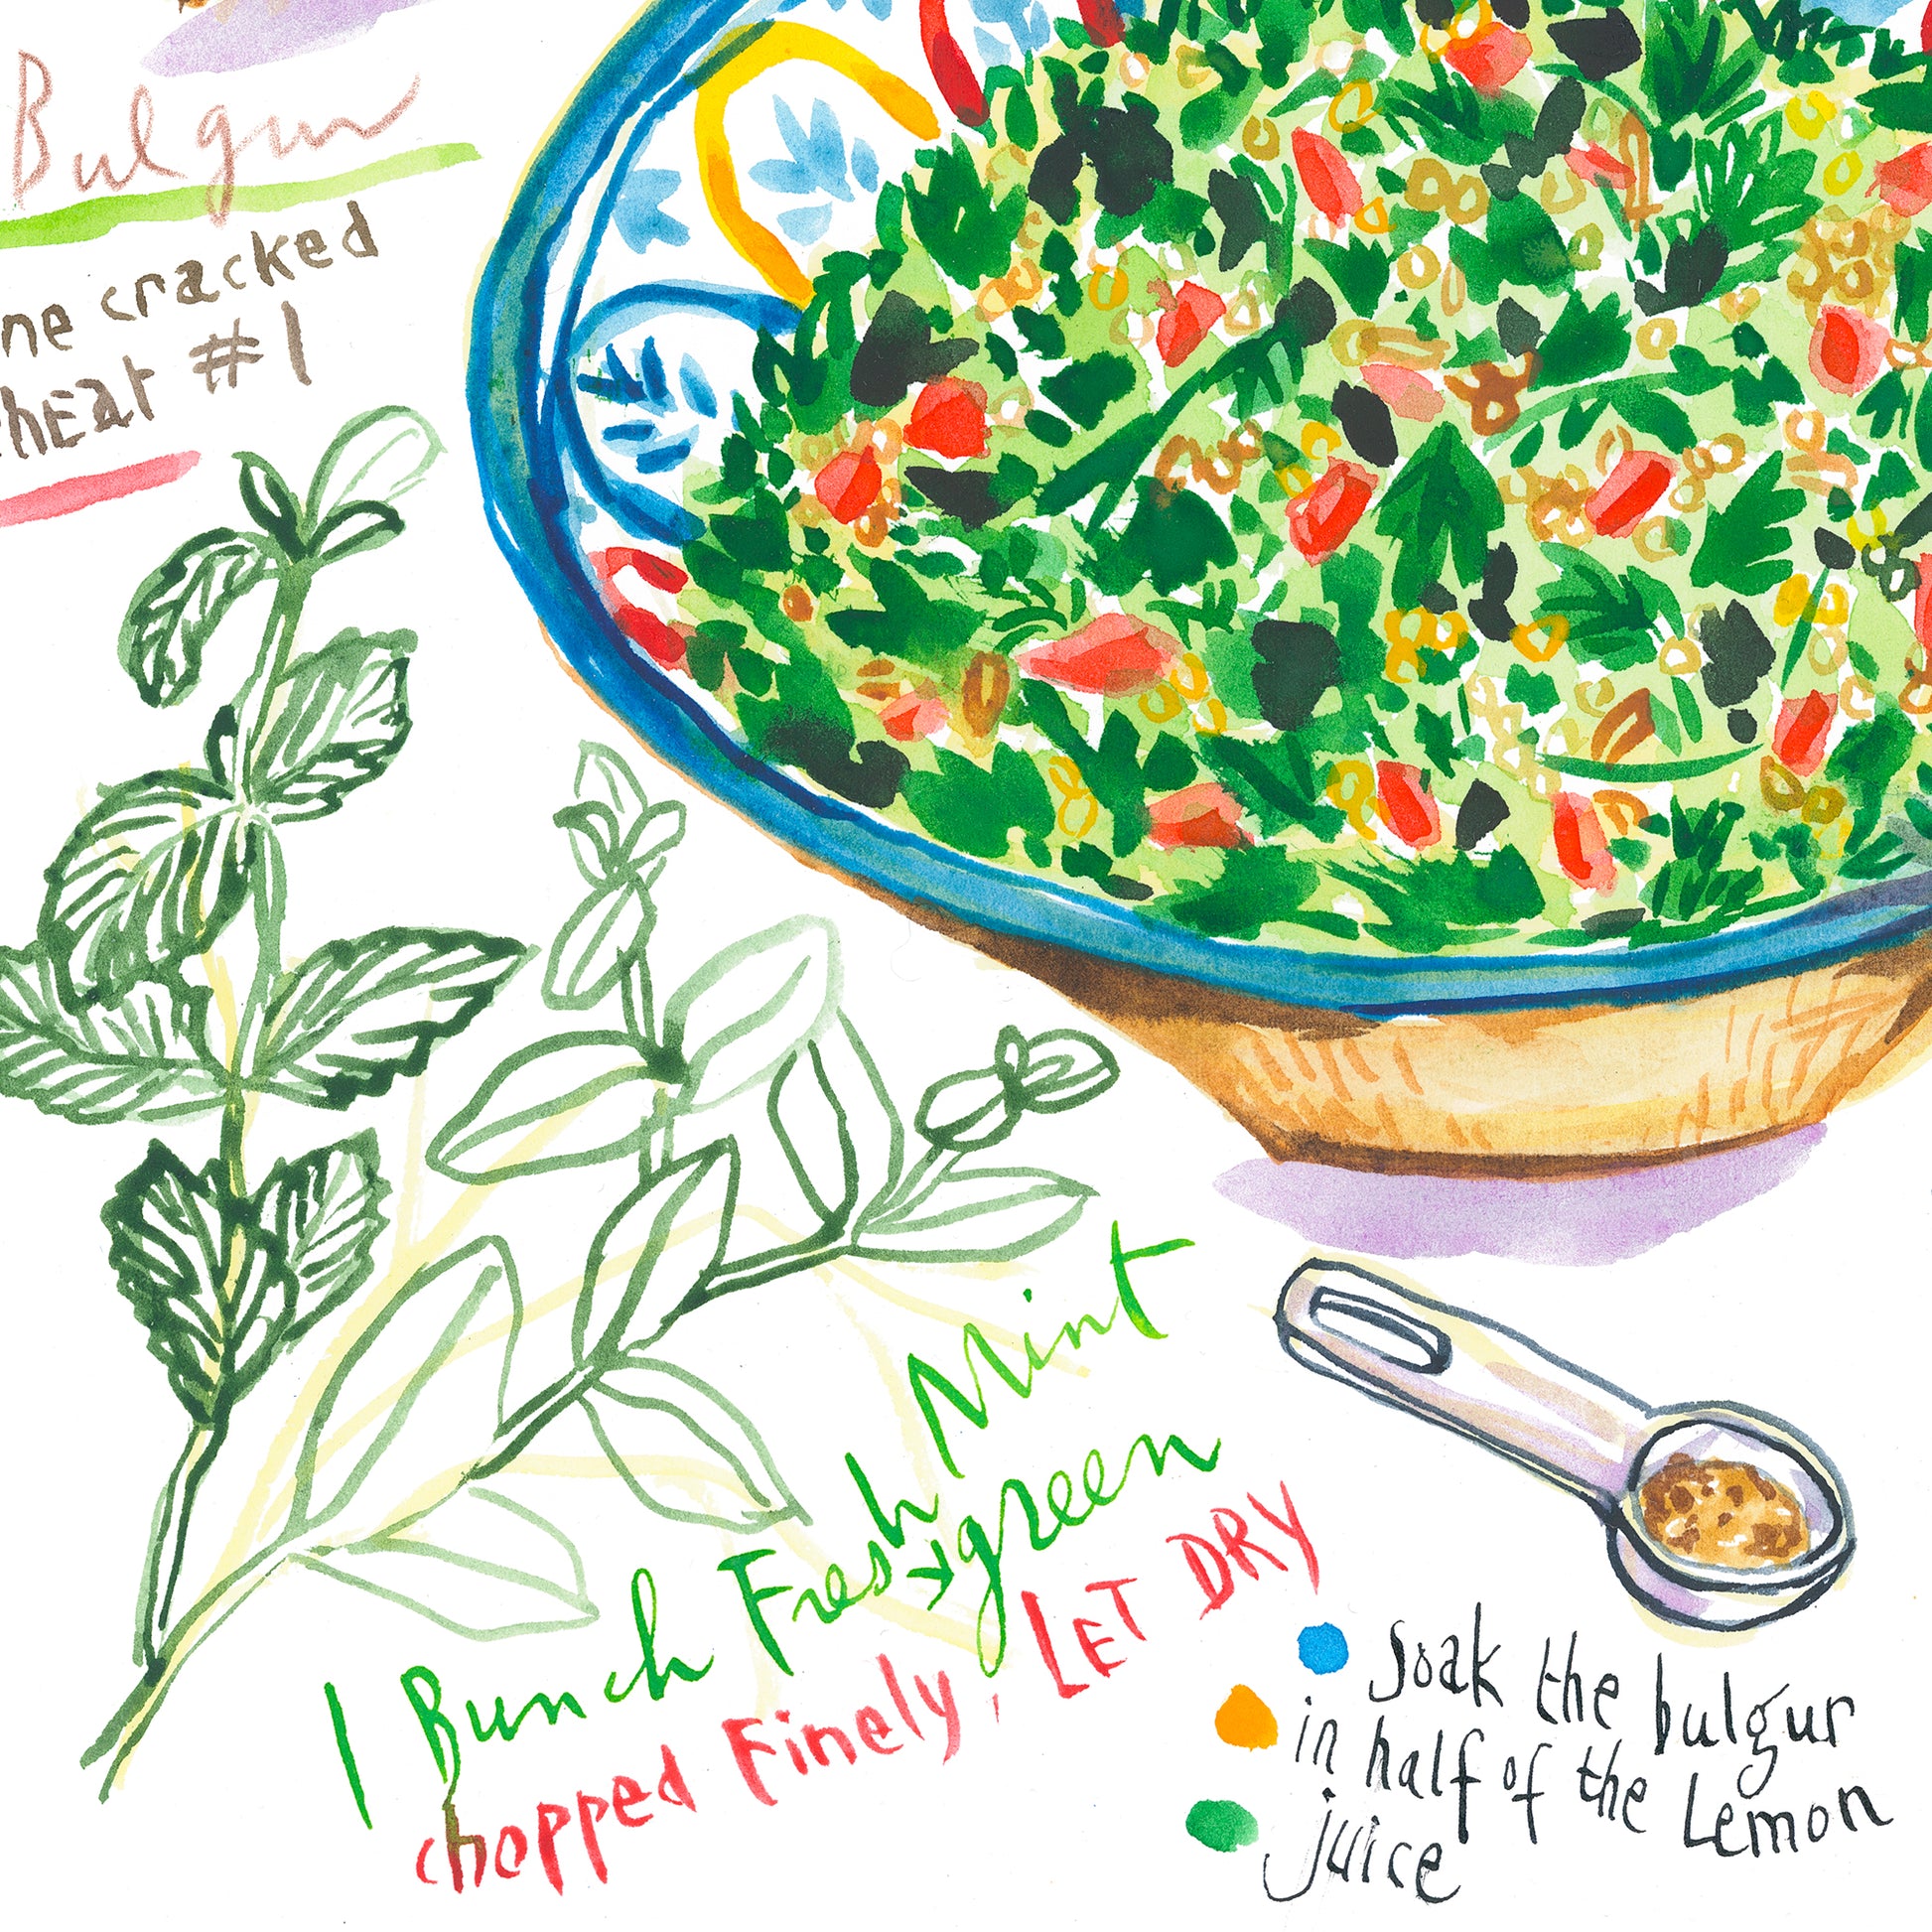 Bulgur
ne cracked
heat #1
1 Bunch Fresh Mint
→green
chopped Finely, LET DRY
Soak the bulgur
in half of the Lemon
juice